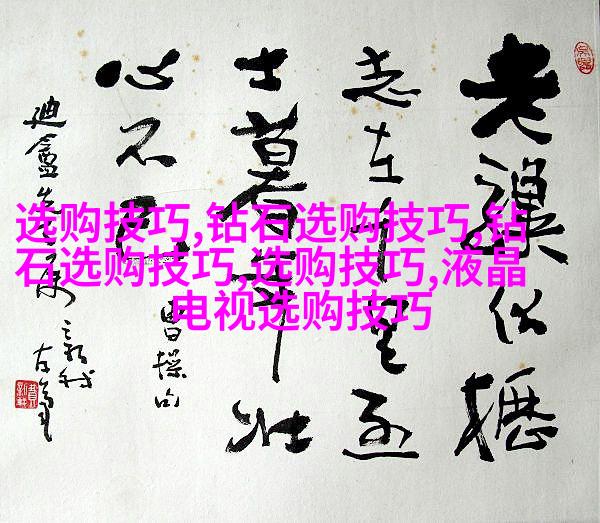 老驥伏櫪
志在千里烈
士暮年壮
心不已
曹操句
选购技巧,钻石选购技巧,钻
石选购技巧,选购技巧,液晶
电视选购技巧